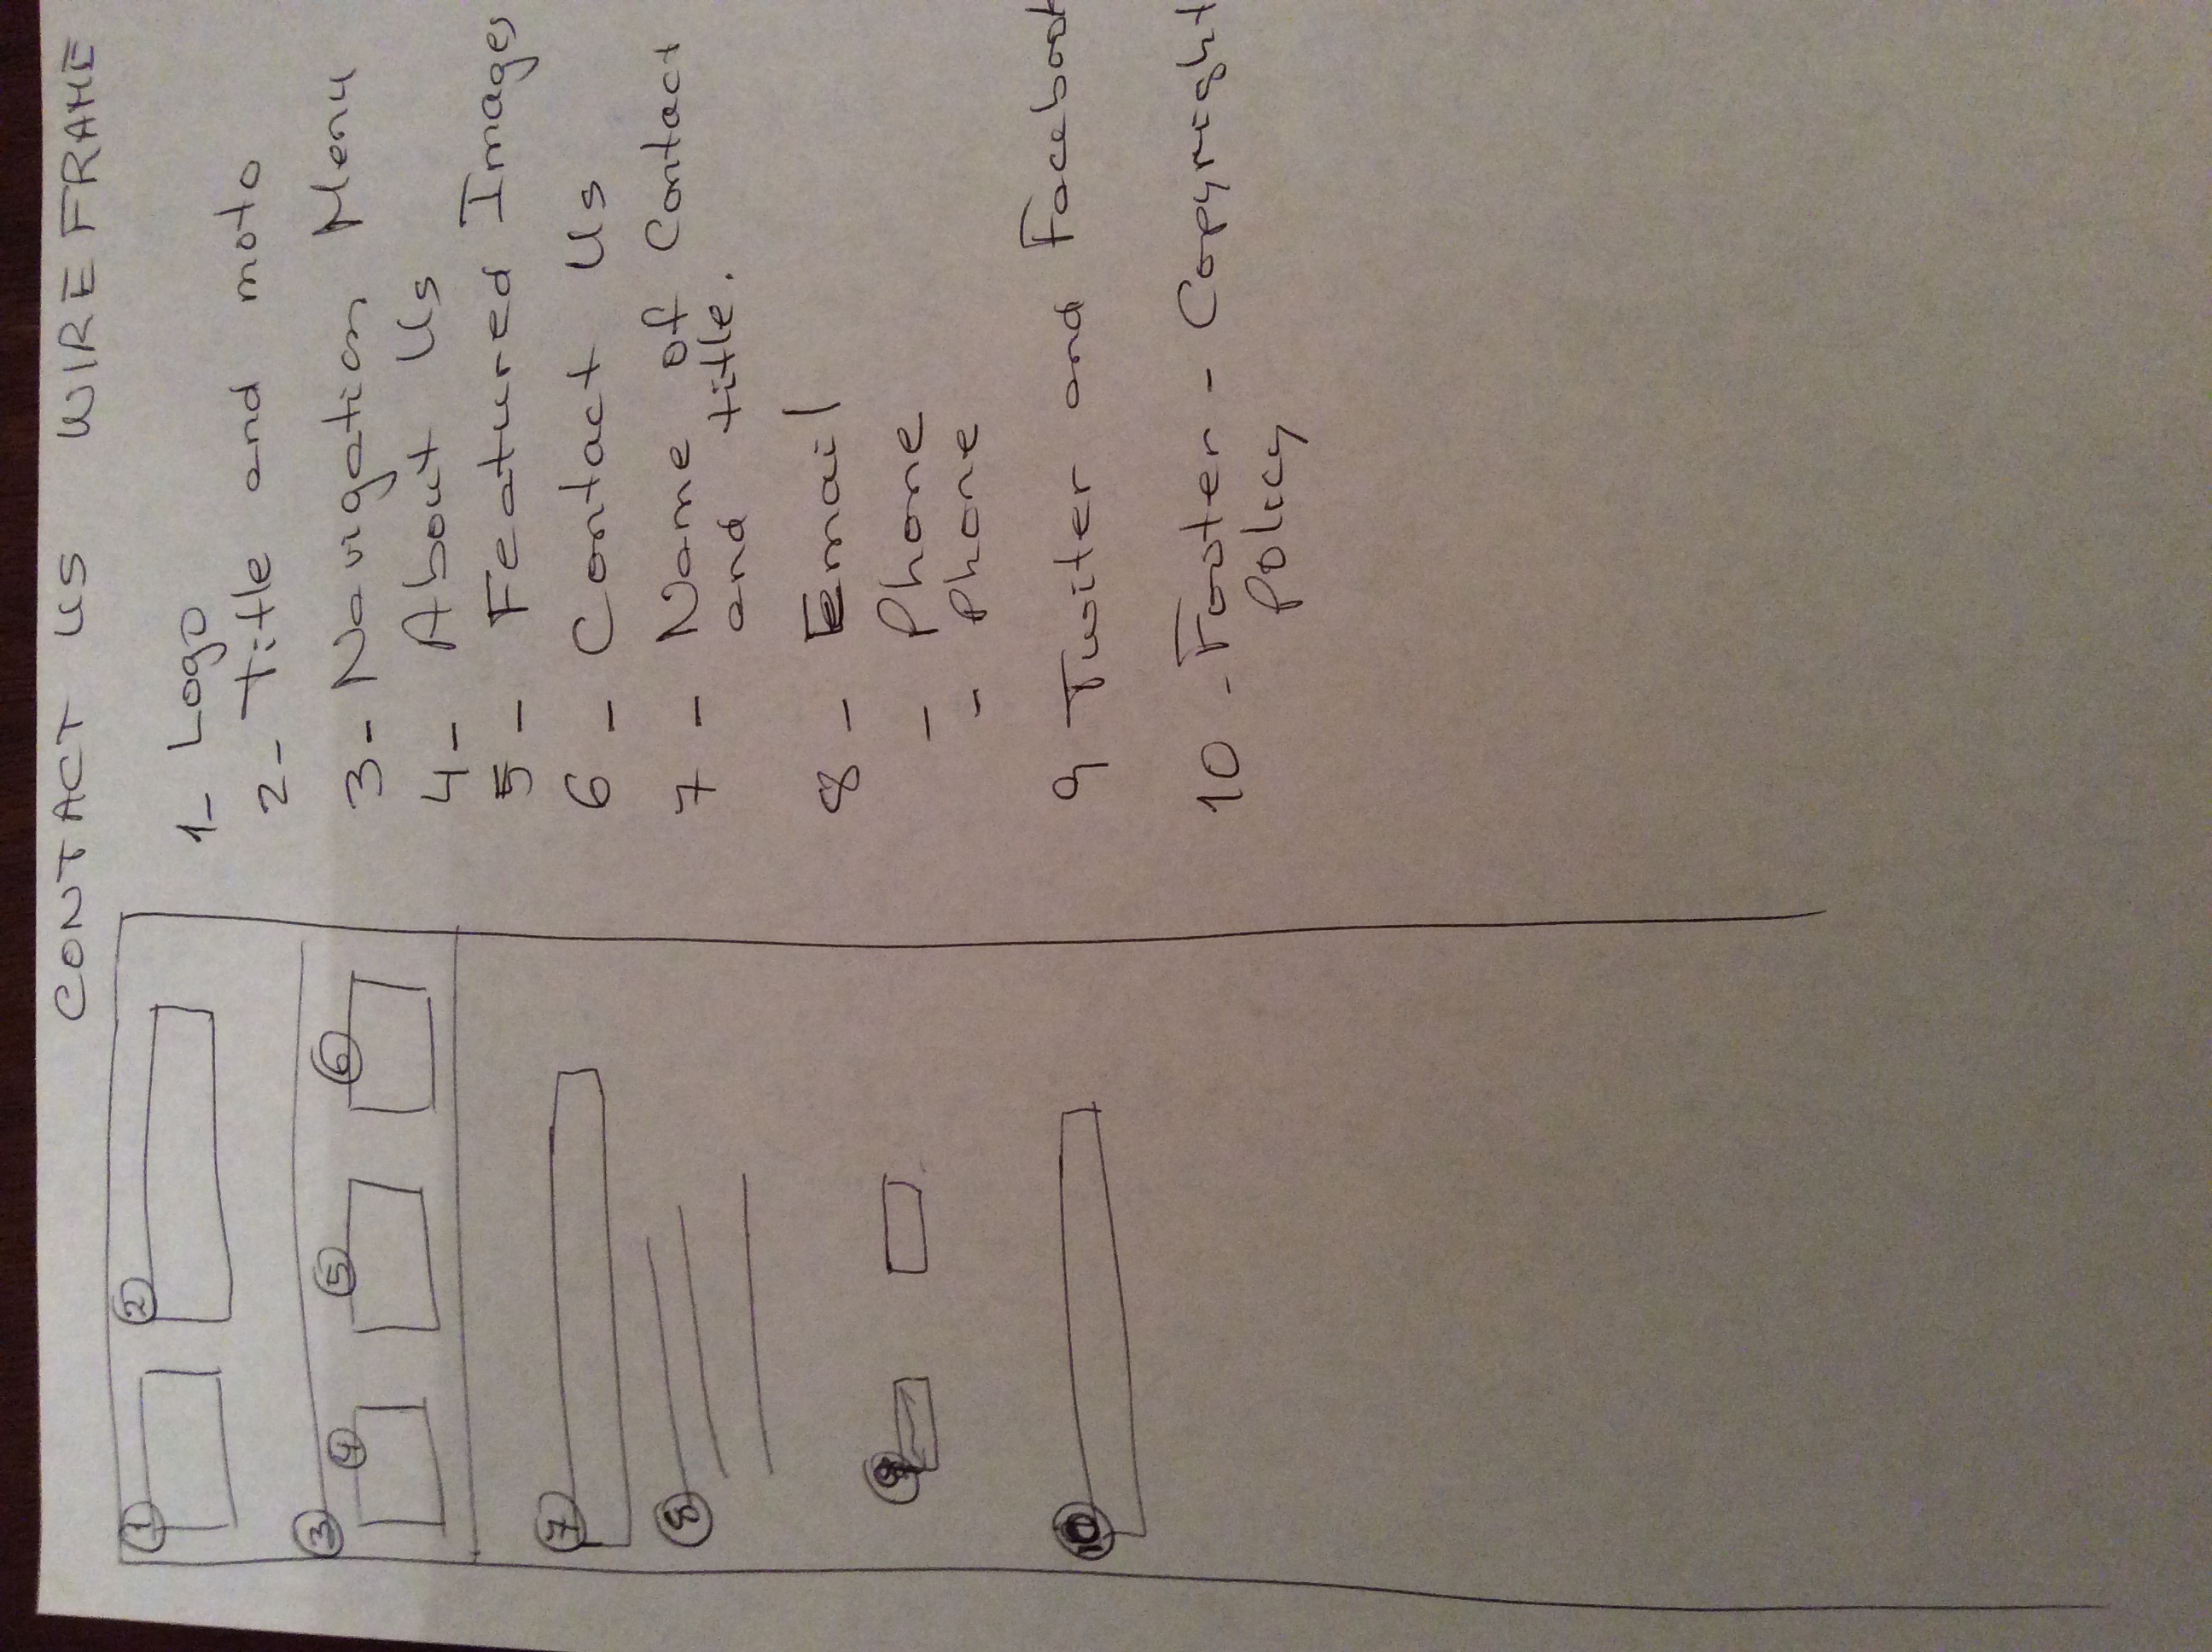 CONTACT US WIREFRAME
1 2
3
4 5 6
7
8
9
10
1- Logo
2- Title and moto
3- Navigation Menu
4- About Us
5- Featured Images
6- Contact Us
7- Name of Contact
and title.
8- Email
- Phone
- Phone
9 Twiter and Facebook
10 - Footer - Copyright
Policy